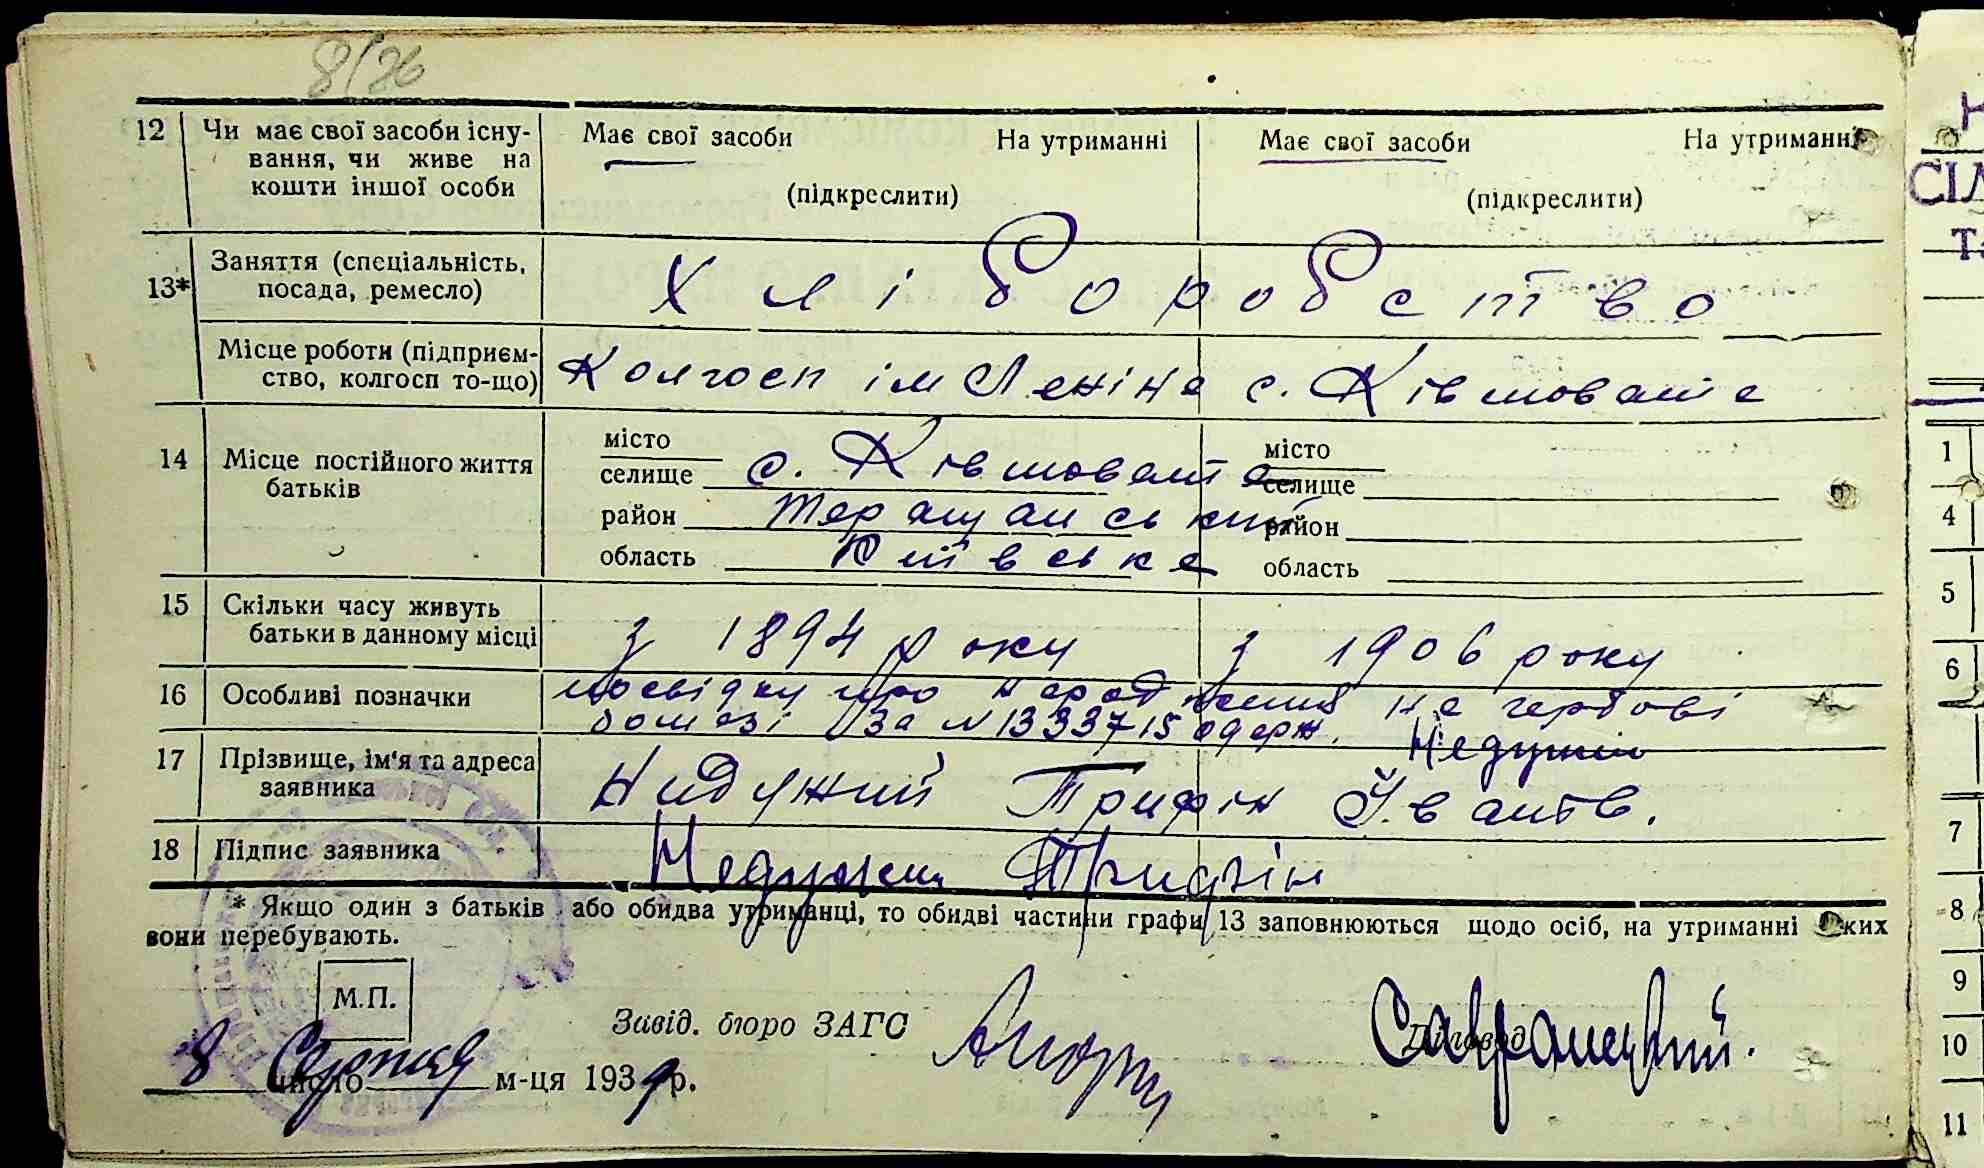 8/26
12 Чи має свої засоби існу- Має свої засоби На утриманні Має свої засоби На утриманні
вання, чи живе на
кошти іншої особи (підкреслити) (підкреслити)
13* Заняття (спеціальність, посада, ремесло) Хліборобство
Місце роботи (підприєм-
ство, колгосп то-що) Колгосп ім Леніна с. Ківшовата
14 Місце постійного життя батьків
місто місто
селище с. Ківшовата селище
район Таращанський район
область Київська область
15 Скільки часу живуть
батьки в данному місці з 1894 року з 1906 року
16 Особливі позначки посвідку про народження на гербові
бомазі За N 1333715 одерж. Недужий
17 Прізвище, ім'я та адреса
заявника Нидужий Трифін Іванів.
18 Підпис заявника Недужий Трифін
* Якщо один з батьків або обидва утриманці, то обидві частини графи 13 заповнюються щодо осіб, на утриманні яких
вони перебувають.
М.П.
Завід. бюро ЗАГС Діловод
8 число Серпня м-ця 1939 р.
СІЛ
1
4
5
6
7
8
9
10
11